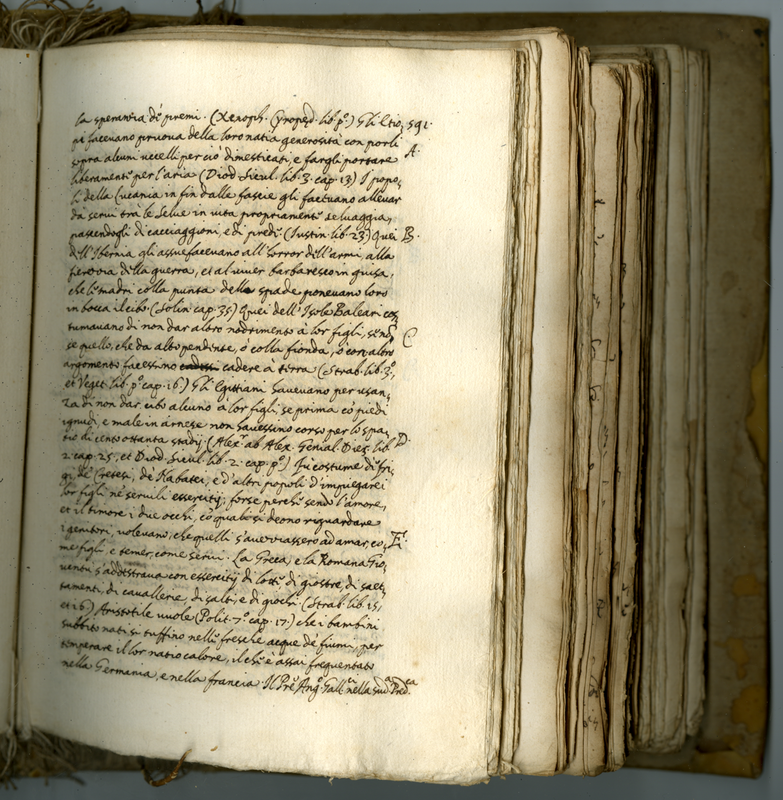 la speranza de' premi. (Xenoph. Cyroped. lib. pº.) Gli Etio, 591.
pi facevano pruova della loro natia generosità con porli
sopra alcuni uccelli per ciò dimesticati, e fargli portare A.
liberamente per l'aria (Diod. Sicul. lib. 3. cap. 13) I popo,
li della Lucania in fin dalle fascie gli facevano allevar
da servi trà le Selve in vita propriamente selvaggia,
pascendogli di cacciaggioni, e di prede. (Iustin. lib. 23.) Quei B.
dell'Ibernia gli assuefacevano all'horror dell'armi, alla
ferocia della guerra, et al viver barbaresco in guisa,
che le madri colla punta della spada ponevano loro
in bocca il cibo. (Solin. cap. 35) Quei dell'Isole Baleari cos,
tumavano di non dar altro nodrimento à lor figli, senò C.
se quello, che da alto pendente, ò colla fionda, ò con altro
argomento facessino cadere à terra (Strab. lib. 3º,
et Veget. lib. pº cap. 16.) Gli Egittiani havevano per usan,
za di non dar cibo alcuno à lor figli, se prima cò piedi
ignudi, e male in arnese non havessino corso per lo spa,
tio di cento ottanta stadij. (Alexr. ab Alex. Genial. Dier. lib. D.
2. cap. 25, et Diod. Sicul. lib. 2. cap. pº.) Fu costume di fri,
gi, de' Cretesi, de Nabatei, e d'altri popoli d'impiegare i
lor figli nè servili essercitij; forse perche sendo l'amore,
et il timore i due occhi, cò quali si deono riguardare
i genitori, volevano, che quelli s'avviassero ad amar, co, E.
me figli, e temer, come servi. La Greca, e la Romana Gio,
ventù s'addestrava con essercitij di lotte, di giostre, di saet,
tamenti, di cavallerie, di salti, e di giochi (Strab. lib. 15,
et 16) Aristotile vuole (Polit. 7º. cap. 17.) che i bambini
subbito nati si tuffino nelle fresche acque de' fiumi, per
temperare il lor natio calore, il che è assai frequentato
nella Germania, e nella francia. Il Pre Angº Gallci nella sua Preda